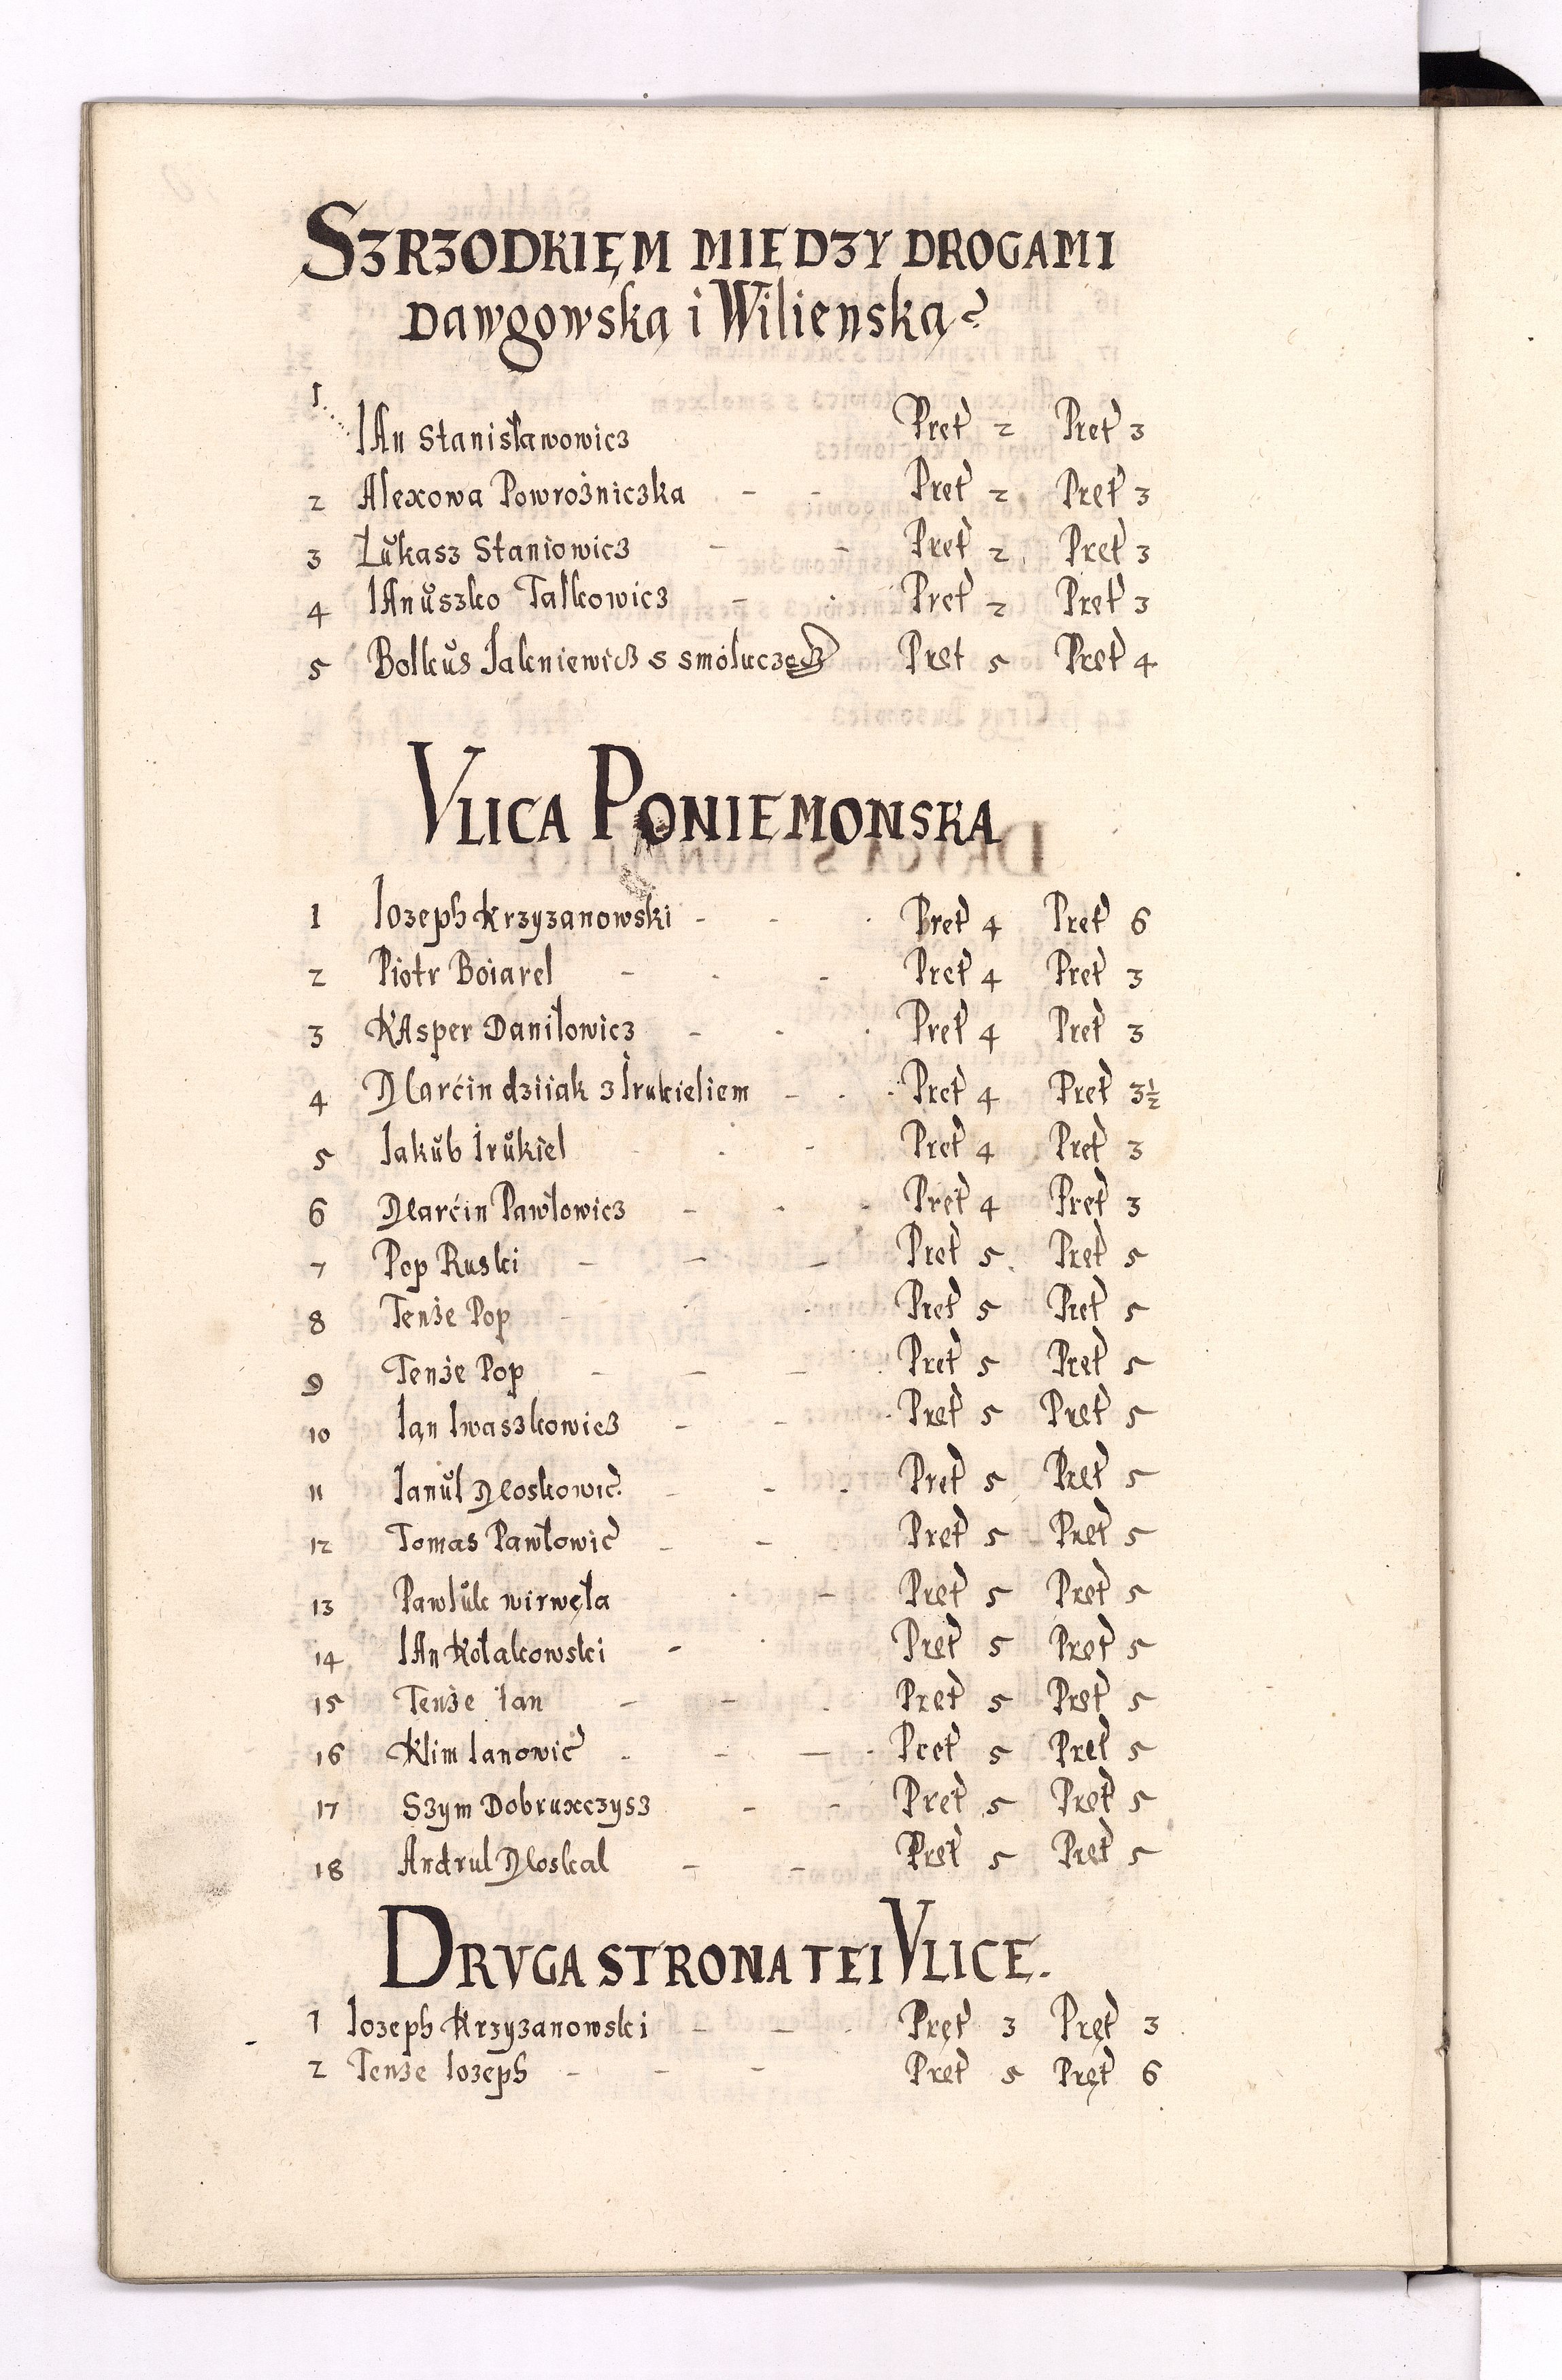 SZRZODKIĘM MIEDZY DROGAMI
Dawgowską i Wilienską
1. IAn Stanisławowicz Pret 2 Pret 3
2 Alexowa Powrożniczka - - Pret 2 Pret 3
3 Łukasz Staniowicz - - Pret 2 Pret 3
4 IAnuszko Talkowicz - - Pret 2 Pret 3
5 Bolkus Jakniewicz s Pret 5 Pret 4
VLICA PONIEMONSKA
1 Iozeph Krzyzanowski - - Pret 4 Pret 6
2 Piotr Boiarel - - - Pret 4 Pret 3
3 KAsper Daniłowicz - - - Pret 4 Pret 3
4 Marćin dziiak z Irukieliem - - - Pret 4 Pret 3½
5 Iakub Irukiel - - Pret 4 Pret 3
6 Marćin Pawłowicz - - - Pret 4 Pret 3
7 Pop Ruski - - - Pret 5 Pret 5
8 Tenże Pop - - - Pret 5 Pret 5
9 Tenże Pop - - - Pret 5 Pret 5
10 Ian Iwaszkowicz - - - Pret 5 Pret 5
11 Ianul Moskowic - - - Pret 5 Pret 5
12 Tomas Pawłowic - - Pret 5 Pret 5
13 Pawluk wirwęła - - Pret 5 Pret 5
14 IAn Kołakowski - - Pret 5 Pret 5
15 Tenże Ian - - - Pret 5 Pret 5
16 Klim Ianowic - - - Pret 5 Pret 5
17 Szym Dobruxczysz - - Pret 5 Pret 5
18 Andrul Moskal - - Pret 5 Pret 5
DRVGA STRONA TEI VLICE.
1 Iozeph Krzyzanowski - - - Pręt 3 Pręt 3
2 Tenze Iozeph - - - Pret 5 Pręt 6